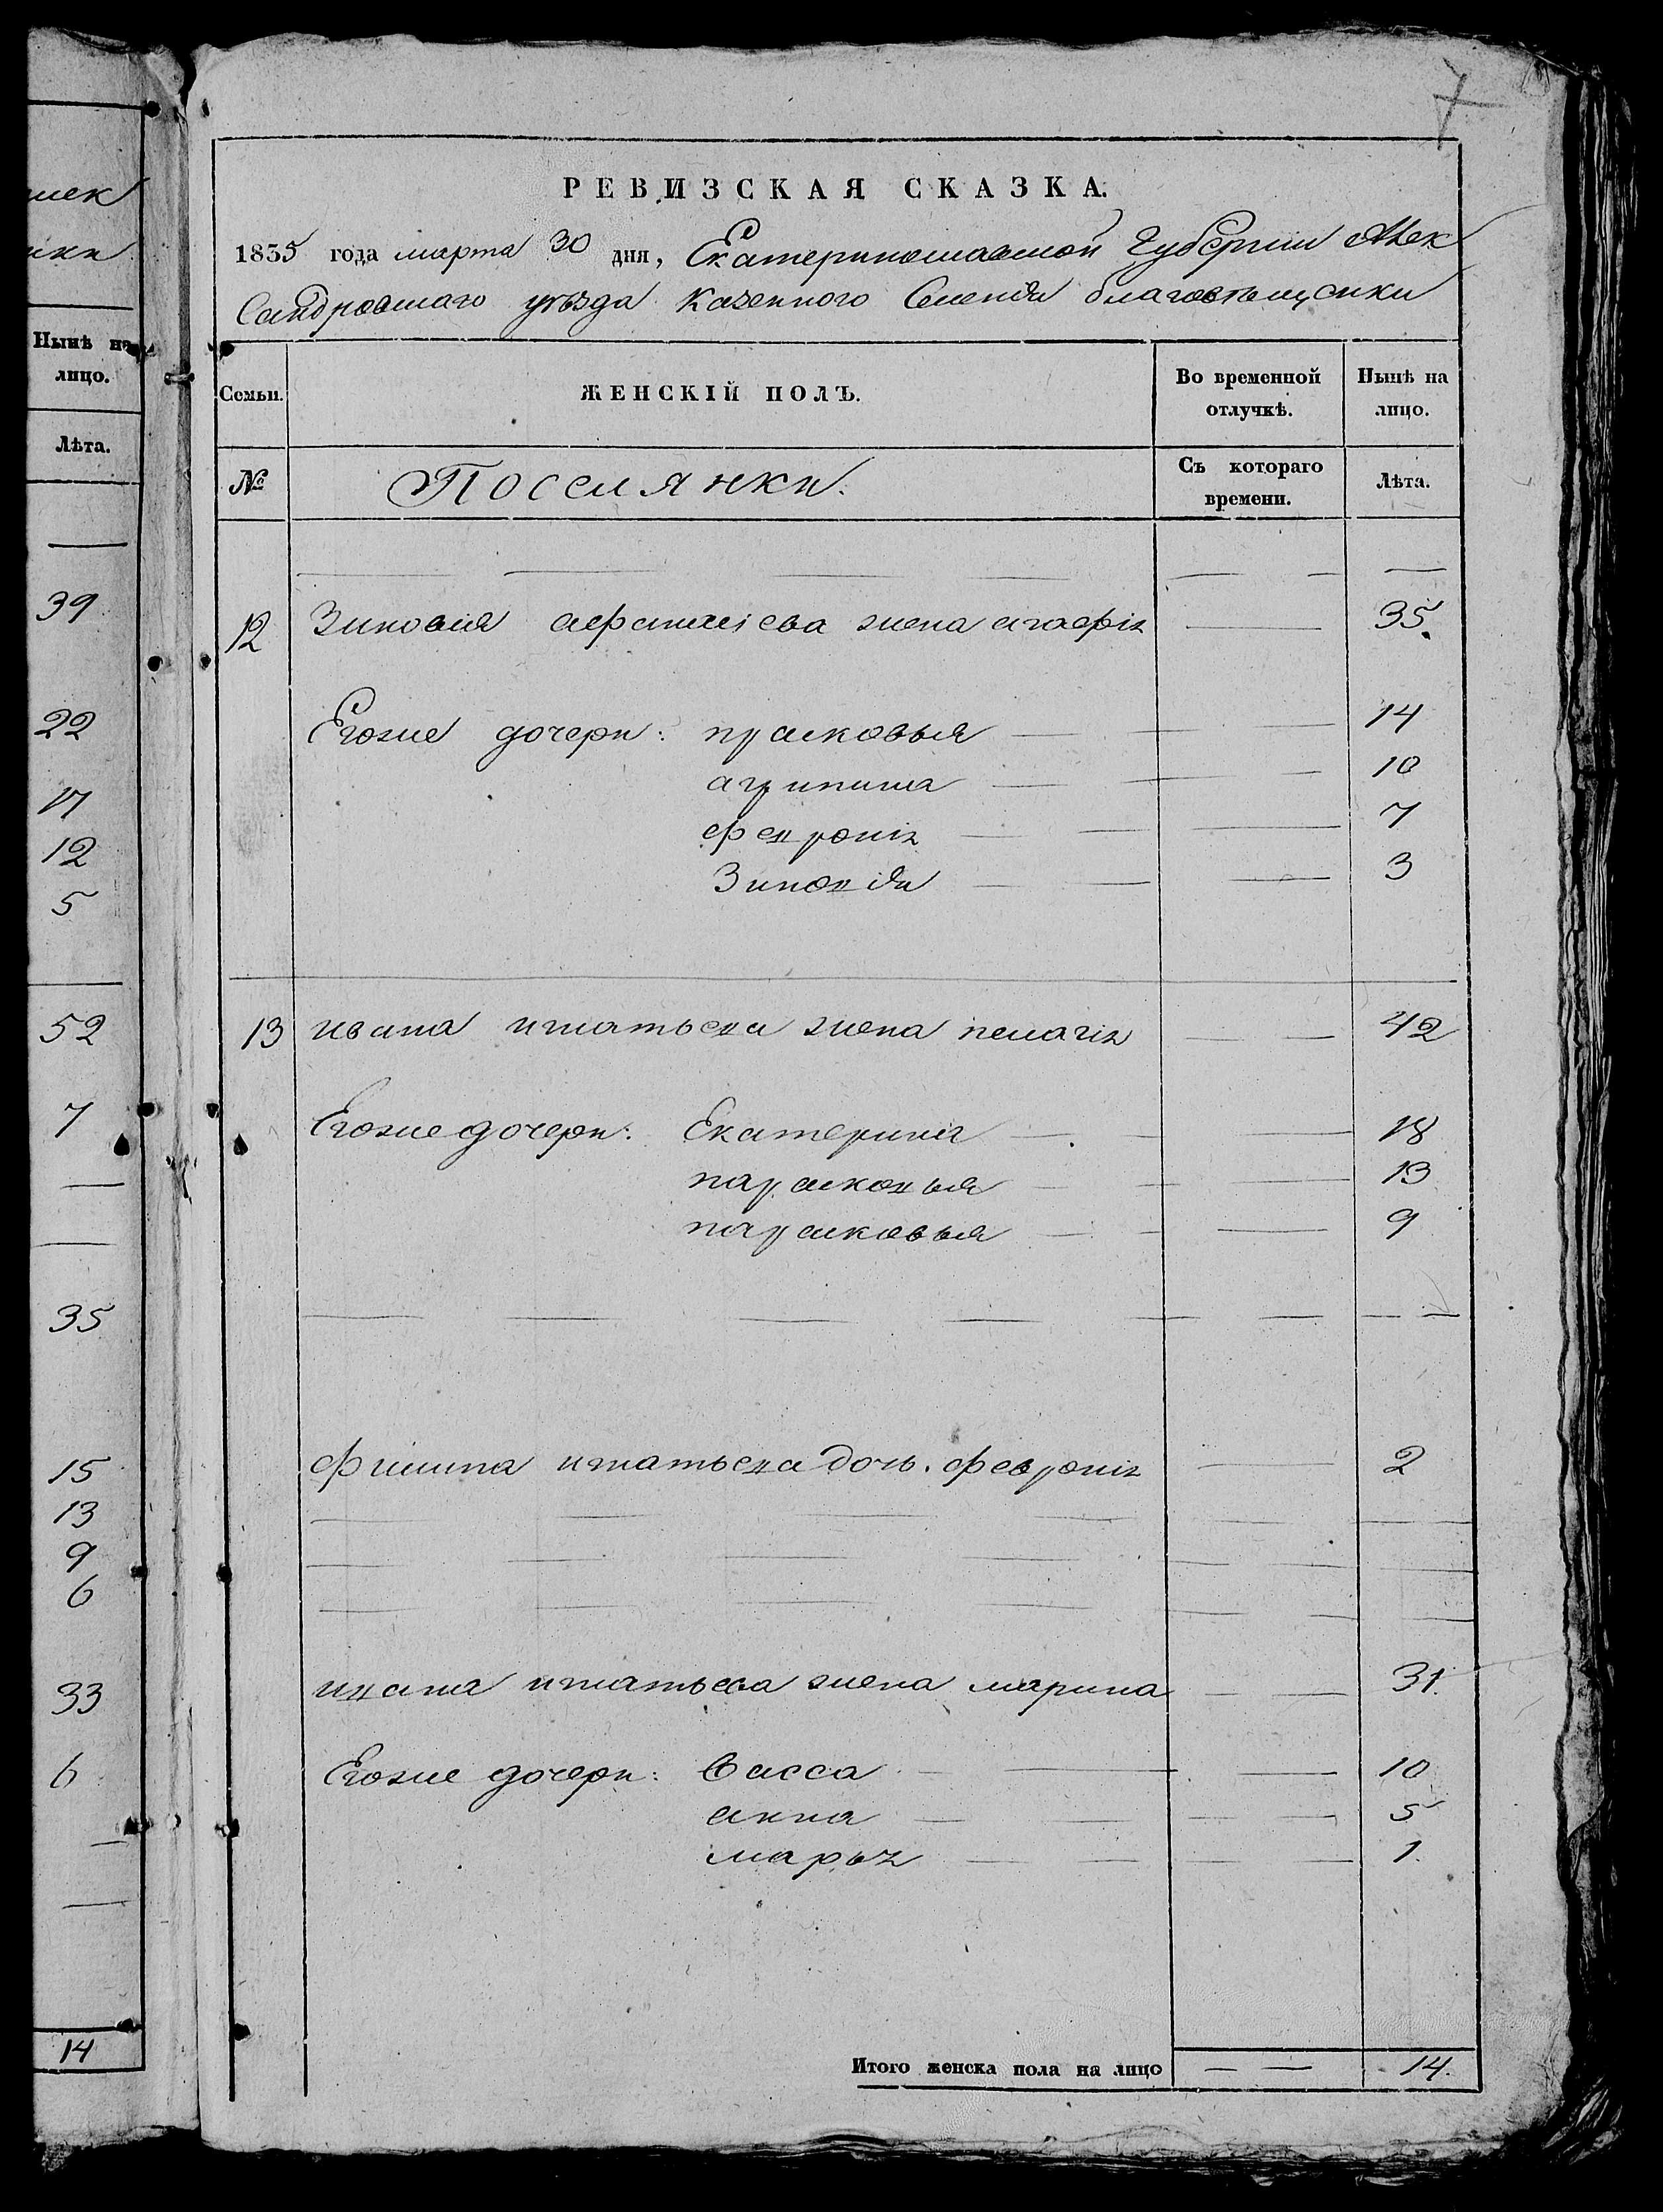 мек
ики
Нынѣ на
лицо.
Лѣта.
39
22
17
12
5
52
7
35
15
13
9
6
33
6
14
РЕВИЗСКАЯ СКАЗКА.
1835 года марта 30 дня, Екатеринославской Губернии Алек
Сандровшаго уѣзда Казенного Селенія благовѣщенки
Семьи.
ЖЕНСКІЙ ПОЛЪ.
Во временной отлучкѣ.
Нынѣ на лицо.
№
Поселянки.
Съ котораго времени.
Лѣта.
12 Зиновия афанасіева жена агафія 35.
Егоже дочери: прасковья 14
агрипина 10
февронія 7
Зиновія 3
13 ивана игнатьева жена пелагія 42
Егоже дочери: Екатерина 18
парасковья 13
парасковья 9
филипа игнатьева дочь. февронія 2
ивана игнатьева жена марина 31.
Егоже дочери: Васса 10
анна 5
марья 1.
Итого женска пола на лицо 14.